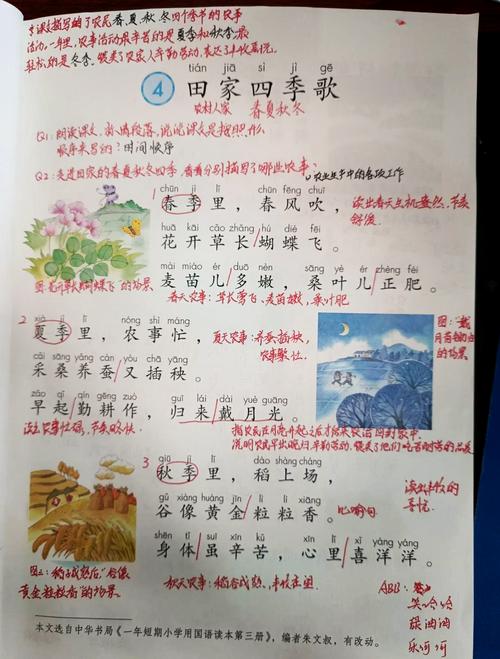 本课文描写的了农民春、夏、秋、冬四个季节的农事
活动，一年里，农事活动最辛苦的是夏季和秋季，最
轻松的是冬季，赞美了农家人辛勤劳动，表达了丰收喜悦。
tián jiā sì jì gē
4 田家四季歌
农村人家 春夏秋冬
Q1: 朗读课文，说说是按照什么
顺序来写的？时间顺序
Q2: 走进田家的春夏秋冬四季，看看分别描写了哪些农事？农业生产中的各项工作
chūn jì chūn fēng chuī
1 春季里，春风吹，
读出春天生机盎然，节奏
舒缓。
huā kāi cǎo zhǎng hú dié fēi
花开草长蝴蝶飞。
mài miáo ér duō nèn sāng yè ér zhèng féi
麦苗儿多嫩，桑叶儿正肥。
图：花开草长蝴蝶飞的场景
春天农事：草长莺飞、麦苗嫩，桑叶肥
xià jì lǐ nóng shì máng
2 夏季里，农事忙，
夏天农事：养蚕插秧，
农事繁忙。
cǎi sāng yǎng cán yòu chā yāng
采桑养蚕又插秧。
zǎo qǐ qín gēng zuò guī lái dài yuè guāng
早起勤耕作，归来戴月光。
读出农事忙碌，节奏略快
图：戴
月荷锄归
的场景
指农民在月亮升起之后才结束农活回到家中，
说明农民早出晚归，辛勤劳动，赞美了他们吃苦耐劳的品质
qiū jì lǐ dào shàng cháng
3 秋季里，稻上场，
gǔ xiàng huáng jīn lì lì xiāng
谷像黄金粒粒香。
比喻句
读出丰收的
喜悦。
shēn tǐ suī xīn kǔ xīn lǐ xǐ yáng yáng
身体虽辛苦，心里喜洋洋。
图：稻子成熟后，"谷像
黄金粒粒香"的场景
秋天农事：稻谷成熟、丰收在望
ABB：
笑哈哈
绿油油
乐呵呵
本文选自中华书局《一年短期小学用国语读本第三册》，编者朱文叔，有改动。